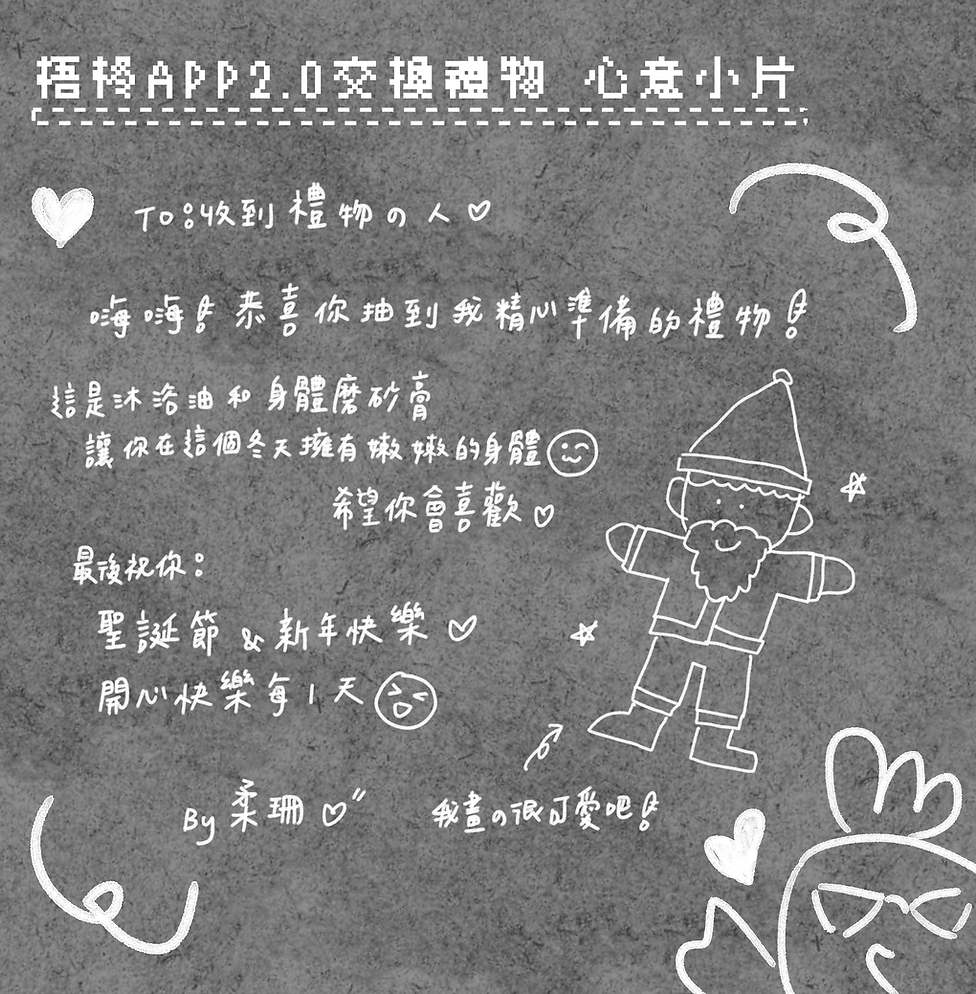 梧桐APP2.0交換禮物 心意小片
To:收到禮物の人♡
嗨嗨!恭喜你抽到我精心準備的禮物!
這是沐浴油和身體磨砂膏
讓你在這個冬天擁有嫩嫩的身體
希望你會喜歡♡
最後祝你:
聖誕節&新年快樂♡
開心快樂每1天
By柔珊♡"
我畫の很可愛吧!